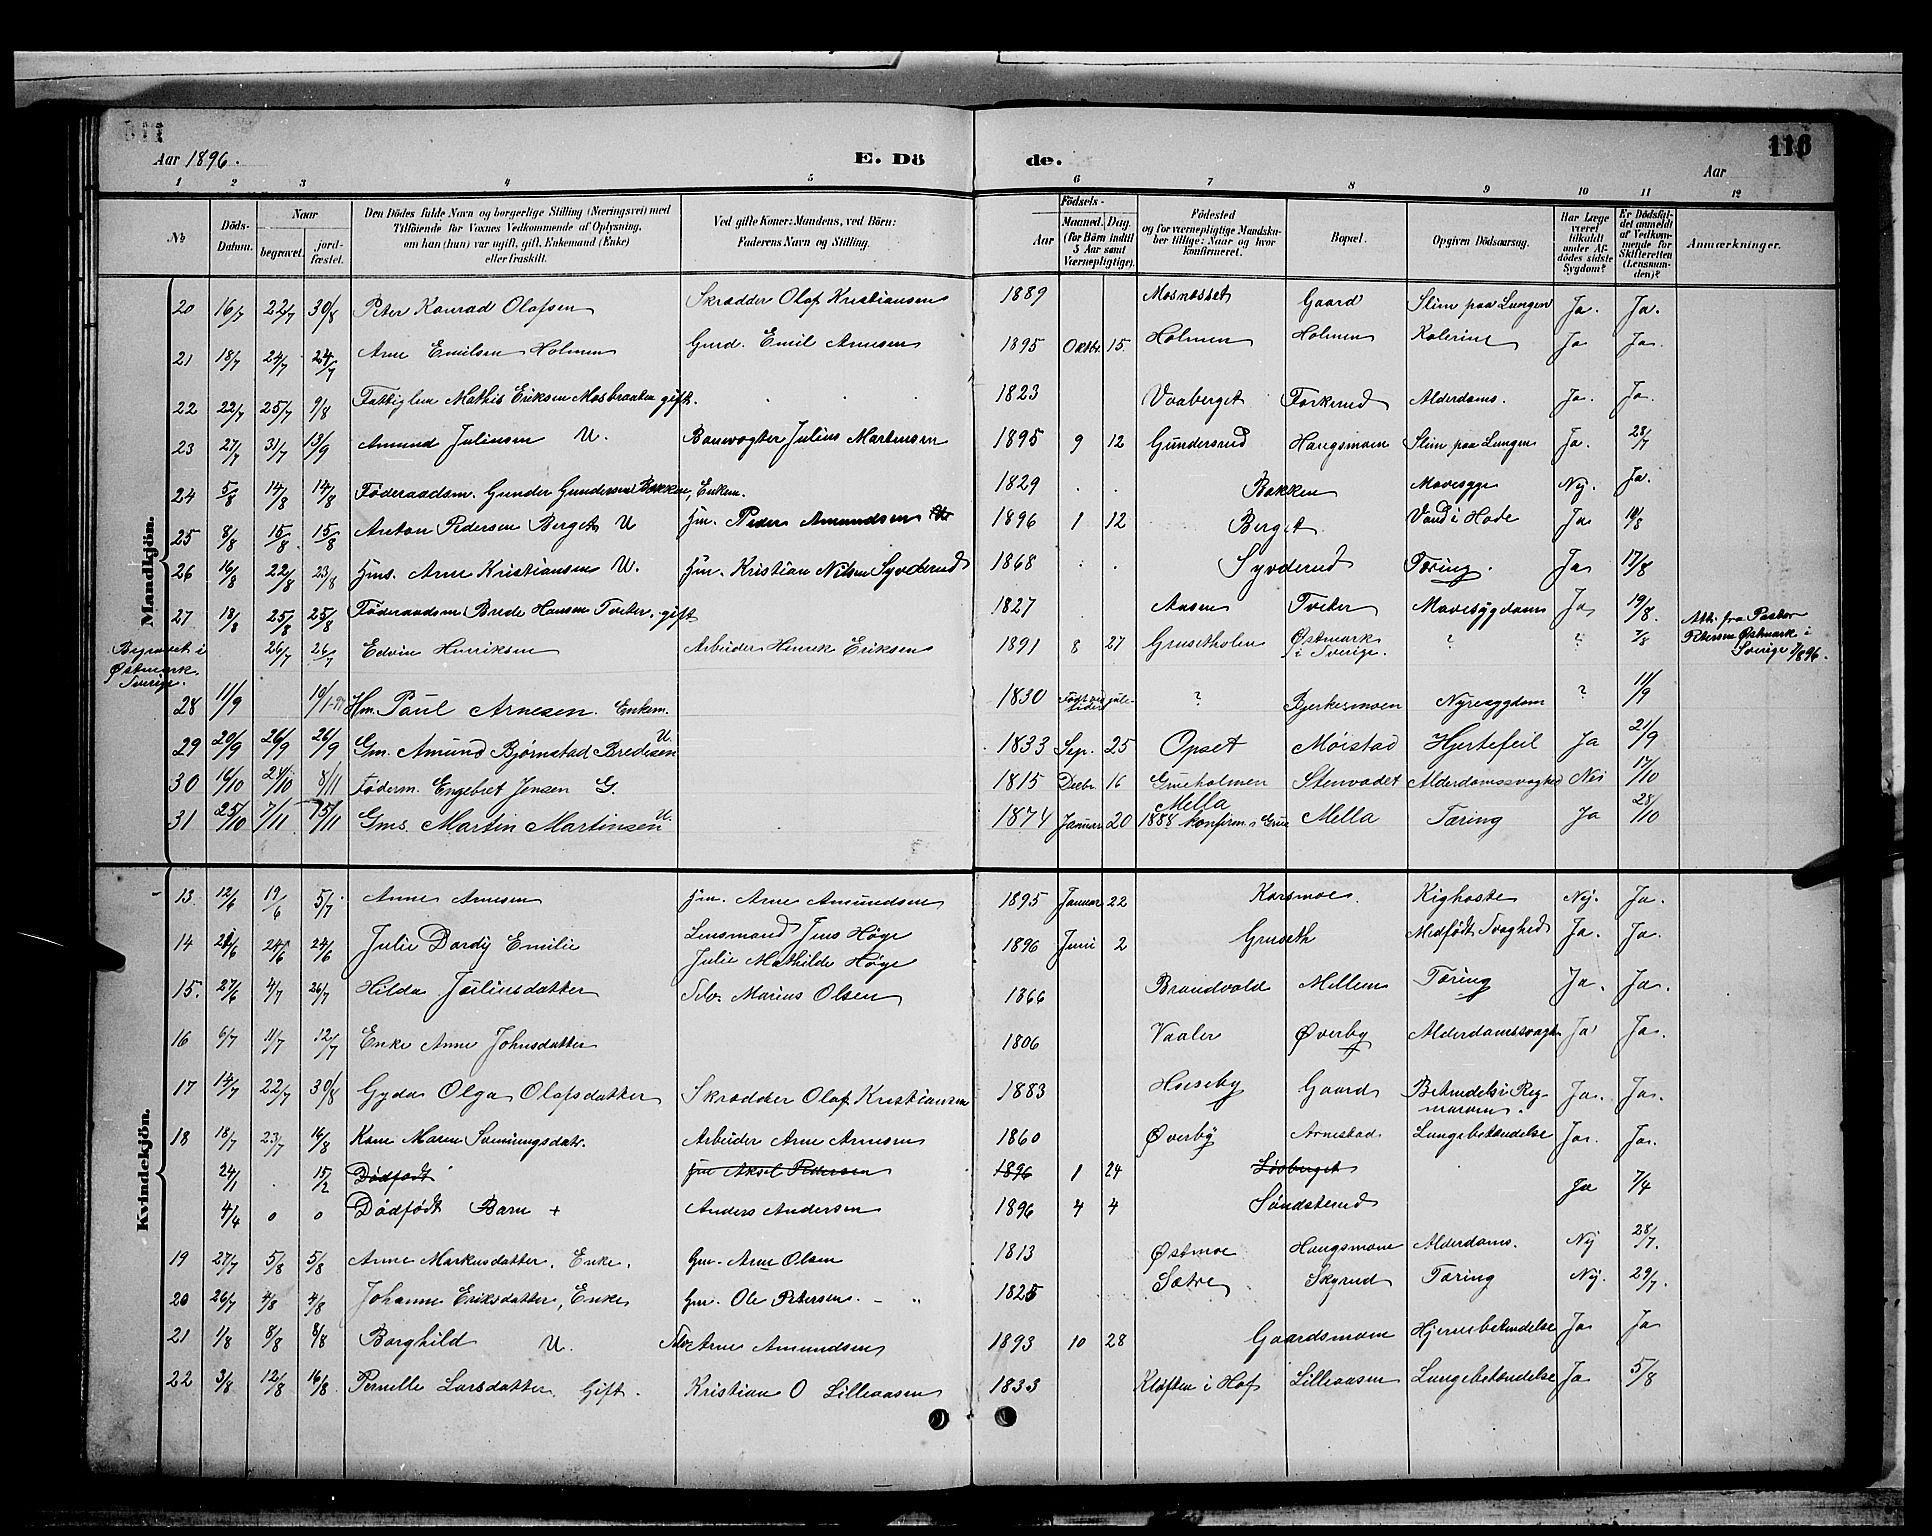 Aar 1896. E. Dö de. Aar 116
1 2 3 4 5 6 7 8 9 10 11 12
№ Döds-Datum. Naar begravet. jord-fæstet. Den Dödes fulde Navn og borgerlige Stilling (Næringsvei) med Tilföiende for Voxnes Vedkommende af Oplysning, om han (hun) var ugift, gift, Enkemand (Enke) eller fraskilt. Ved gifte Koner: Mandens, ved Börn: Faderens Navn og Stilling. Födsels- Aar Maaned. Dag. (for Börn indtil 5 Aar samt Værnepligtige). Födested og for værnepligtige Mandskaber tillige: Naar og hvor konfirmeret. Bopæl. Opgiven Dödsaarsag. Har Læge været tilkaldt under Afdödes sidste Sygdom? Er Dödsfaldet anmeldt af Vedkommende for Skifteretten (Lensmanden)? Anmærkninger.
Mandkjön.
20 16/7 22/7 30/8 Peter Konrad Olafsen Skrædder Olaf Kristiansen 1889 Mosnesset Gaard Slim paa Lungen Ja. Ja.
21 18/7 24/7 24/7 Arne Emilsen Holmen Gmd. Emil Arnesen 1895 Oktbr. 15. Holmen Holmen Kolerine Ja Ja.
22 22/7 25/7 9/8 Fattiglem Mathis Eriksen Mosbraaten gift. 1823 Vaaberget Forkerud Alderdoms. Ja. Ja.
23 27/7 31/7 13/9 Amund Juliusen U. Banevogter Julius Martinsen 1895 9 12 Gundersrud Haugsmoen Slim paa Lungen Ja. 28/7
24 5/8 14/8 14/8 Föderaadsm. Gunder Gundersen Bakken, Enkem. 1829 Bakken Mavesyge Nej. Ja.
25 8/8 15/8 15/8 Anton Pedersen Berget U Hm. Peder Amundsen 1896 1 12 Berget Vand i Hode Ja 10/8
26 16/8 22/8 23/8 Hms. Arne Kristiansen U. Hm. Kristian Nilsen Syvderud 1868 Syvderud Tæring. Ja 17/8
27 18/8 25/8 25/8 Föderaadsm. Brede Hansen Tveter. gift 1827 Aasen Tveter Mavesygdom Ja 19/8.
Begravet i Østmark Sverige. 26/7 26/7 Edvin Henriksen Arbeider Henrik Eriksen 1891 8 27 Grusetholen Østmark i Sverige. ? ? 7/8 Att. fra Pastor Petersen Østmark i Sverige 7/8 96.
28 11/9 19/1-97 Hm. Paul Arnesen. Enkem. 1830 Födt ved juletider ? Bjerkesmoen Nyresygdom ? 11/9
29 20/9 26/9 26/9 Gm. Amund Bjørnstad Bredesen U. 1833 Sep. 25 Opset Møistad Hjertefeil Ja 21/9
30 16/10 24/10 8/11 Föderm. Engebret Jensen G. 1815 Decbr. 16 Grueholmen Stenvadet Alderdomssvaghed Nei 17/10
31 25/10 7/11 15/11 Gms. Martin Martinsen U. 1874 Januar 20 Mella 1888 konfirm. i Grue Mella Tæring Ja 28/10
Kvindekjön.
13. 12/6 19/6 5/7 Anne Arnesen Hm. Arne Amundsen 1895 Januar 22 Korsmoe. Kighoste Nej. Ja.
14 21/6 24/6 24/6 Julie Dordy Emilie Lensmand Jens Höye Julie Mathilde Höye 1896 Juni 2 Gruseth Medfödt Svaghed Ja. Ja.
15. 27/6 4/7 26/7 Hilda Juliusdatter Selv. Marius Olsen 1866 Brandvold Mellem Tæring Ja. Ja.
16 6/7 11/7 12/7 Enke Anne Johnsdatter 1806 Vaaler Øverby Alderdomssvagh. Ja Ja.
17 14/7 22/7 30/8 Gyda Olga Olafsdatter Skrædder Olaf Kristiansen 1883 Huseby Gaard Betændelse i Rygmarven. Ja. Ja.
18 18/7 23/7 16/8 Kone Maren Svenungsdatr. Arbeider Arne Arnesen 1860 Øverby Arnestad Lungebetændelse Ja. Ja.
24/1 15/2 Dødfødt Hm Aksel Pedersen 1896 1 24 Løvberget
4/4 0 0 Dødfødt Barn + Anders Andersen 1896 4 4 Søndsterud Ja 7/4
19 27/7 5/8 5/8 Anne Markusdatter. Enke. Gm. Arne Olsen 1813 Østmoe Haugsmoen Alderdoms. Nej 28/7.
20 26/7 4/8 4/8 Johanne Eriksdatter, Enke Hm. Ole Petersen. 1825 Sætre Skyrud Tæring Nej. 29/7.
21 1/8 8/8 8/8 Borghild U. Selv. Arne Amundsen 1893 10 28 Gaardsmoen Hjernebetændelse Ja Ja
22 3/8 12/8 16/8 Pernille Larsdatter. Gift. Kristian O Lilleaasen 1833 Kløften i Hof Lilleaasen Lungebetændelse Ja 5/8